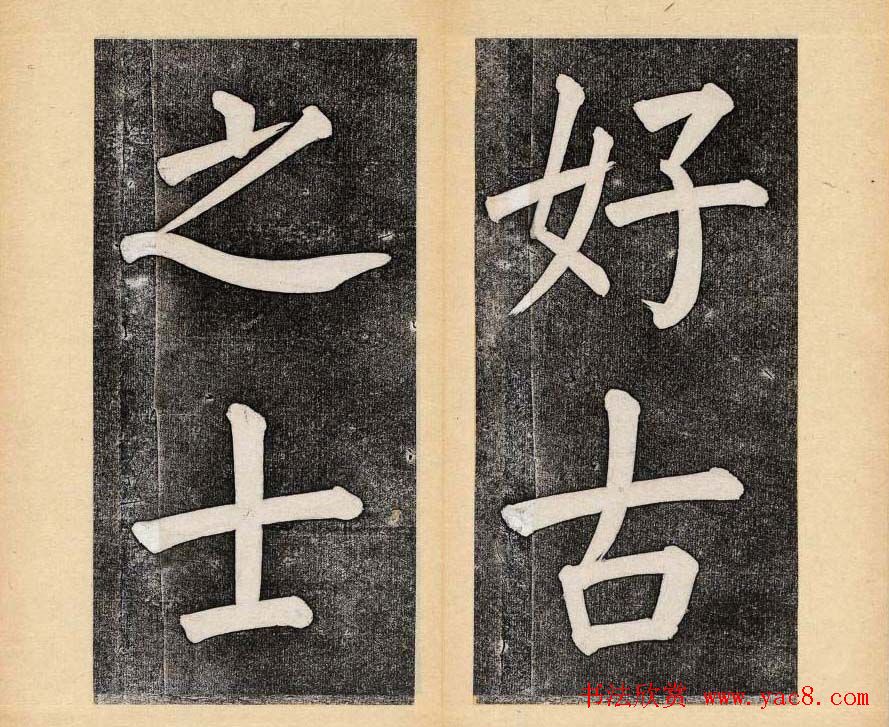 好古
之士
书法欣赏 www.yac8.com